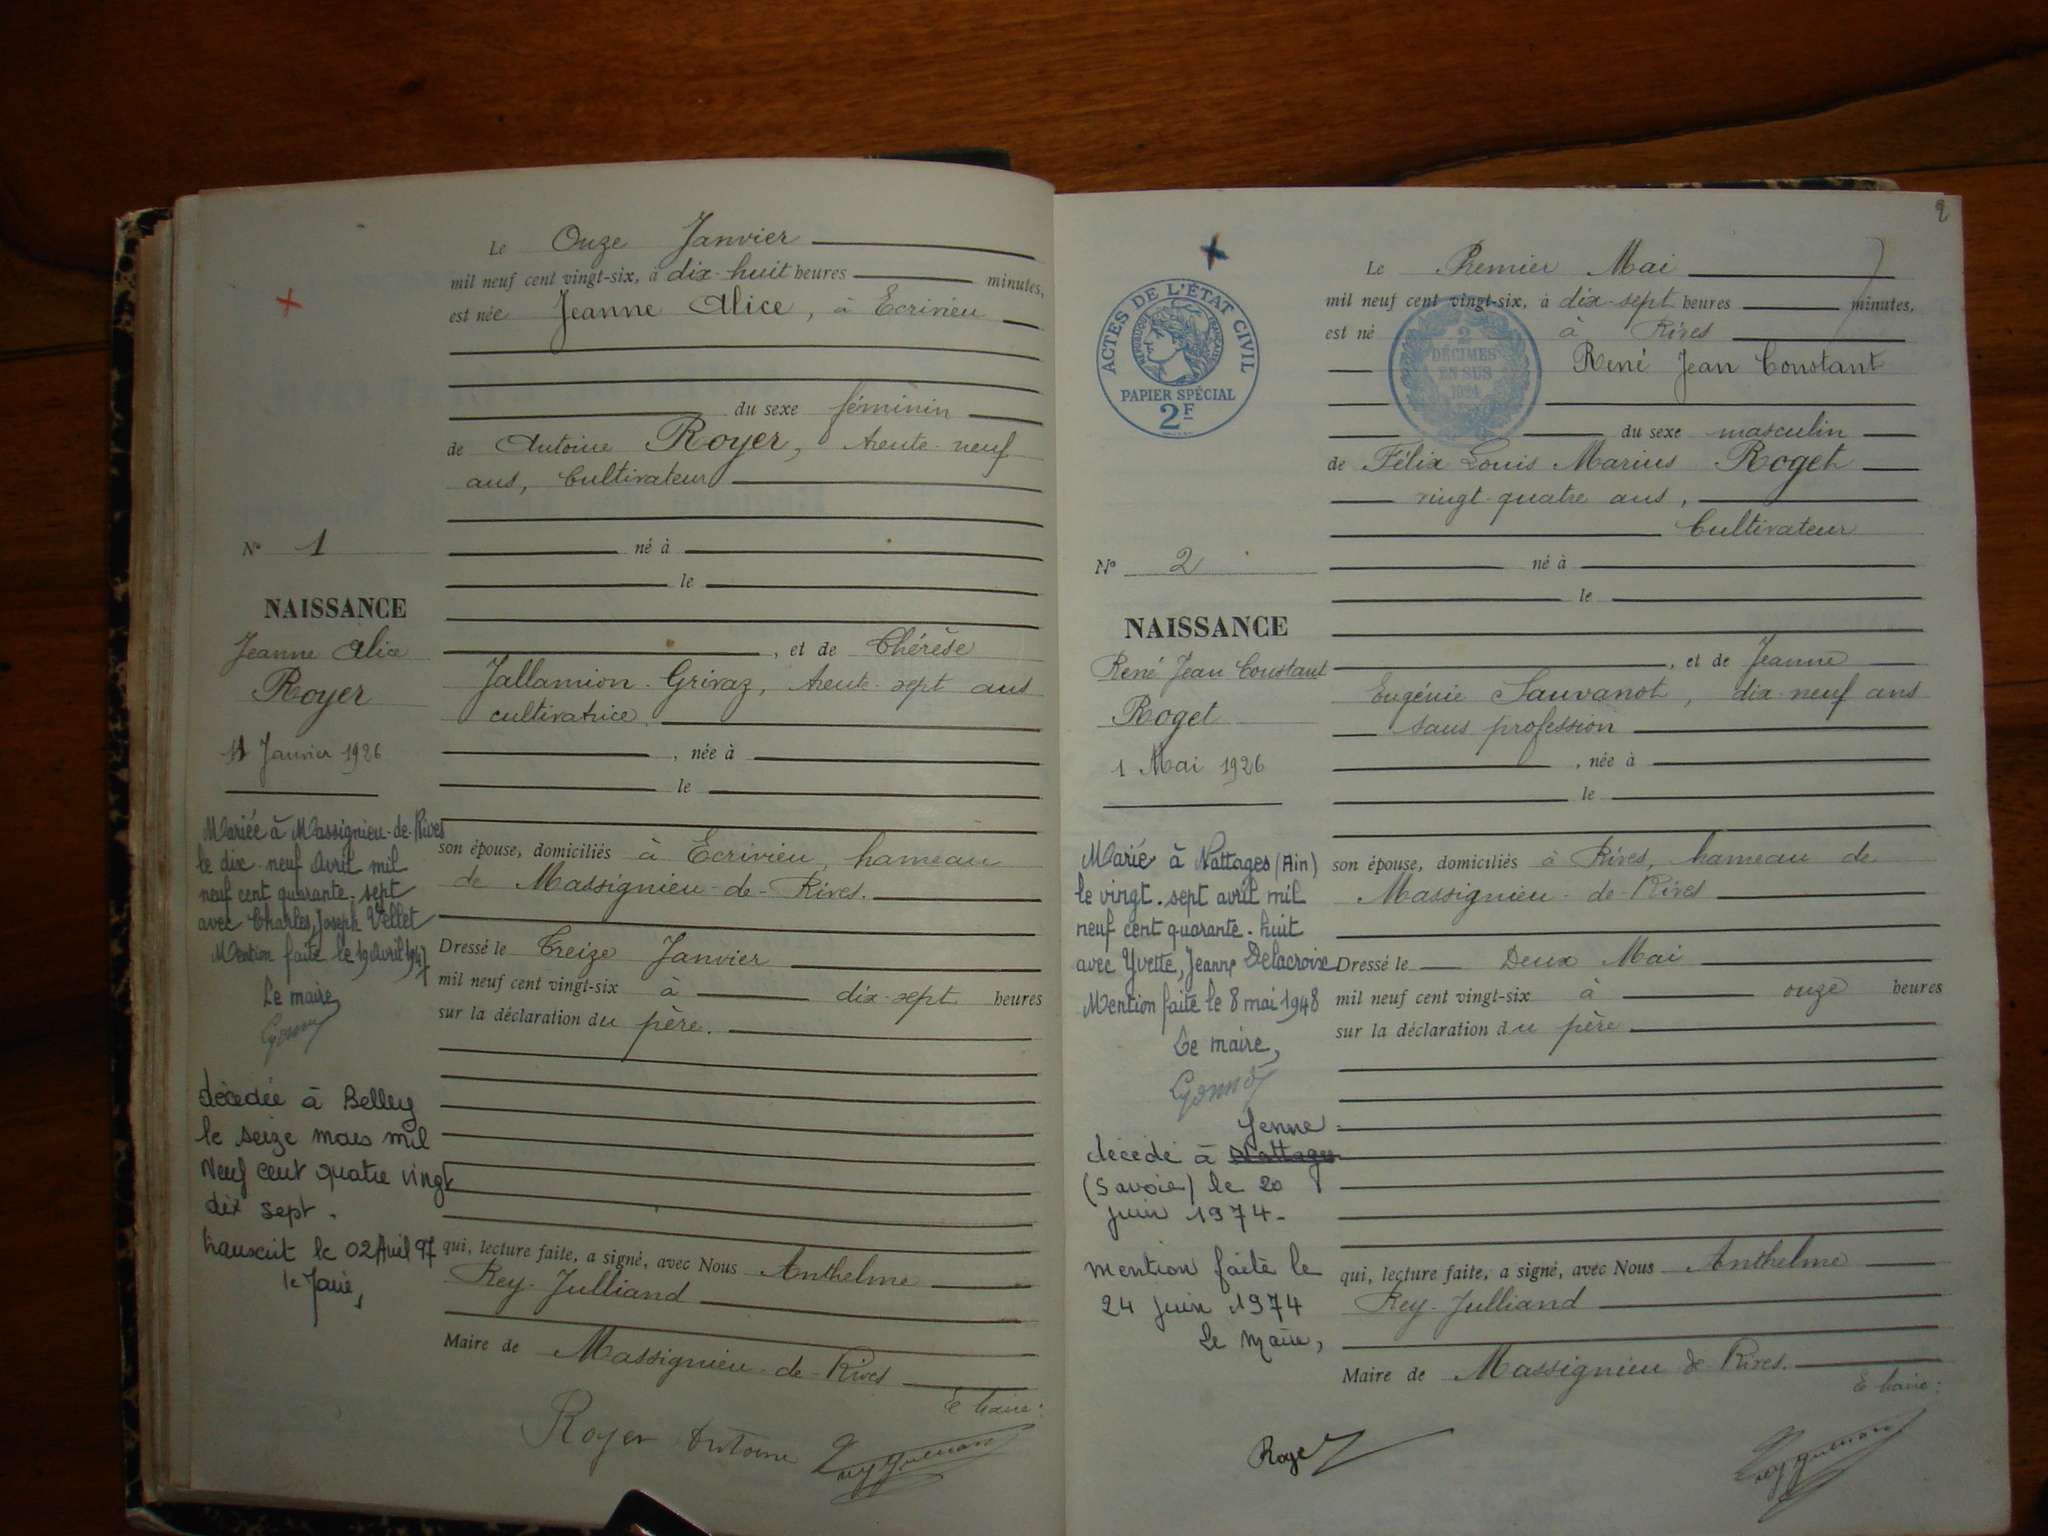 Le Onze Janvier
mil neuf cent vingt-six, à dix-huit heures minutes,
est née Jeanne Alice, à Ecrivieu
du sexe féminin
de Antoine Royer, trente-neuf
ans, Cultivateur
né à
le
, et de Thérèse
Jallamion-Grivaz, trente-sept ans
cultivatrice,
, née à
le
son épouse, domiciliés à Ecrivieu, hameau
de Massignieu-de-Rives.
Dressé le Treize Janvier
mil neuf cent vingt-six à dix-sept heures
sur la déclaration du père.
qui, lecture faite, a signé, avec Nous Anthelme
Rey-Julliand
Maire de Massignieu-de-Rives
Royer Antoine
N° 1
NAISSANCE
Jeanne Alice
Royer
11 Janvier 1926
Mariée à Massignieu-de-Rives
le dix-neuf Avril mil
neuf cent quarante-sept
avec Charles, Joseph Vellet
Mention faite le 19 Avril 1947
Le maire
décédée à Belley
le seize mars mil
Neuf cent quatre vingt
dix sept.
transcrit le 02 Avril 97
le Maire,
2
Le Premier Mai
mil neuf cent vingt-six, à dix-sept heures minutes,
est né à Rives
René Jean Constant
du sexe masculin
de Félix Louis Marius Roget
vingt-quatre ans,
Cultivateur
né à
le
, et de Jeanne
Eugénie Sauvanot, dix-neuf ans
sans profession
, née à
le
son épouse, domiciliés à Rives, hameau de
Massignieu-de-Rives
Dressé le Deux Mai
mil neuf cent vingt-six à onze heures
sur la déclaration du père
qui, lecture faite, a signé, avec Nous Anthelme
Rey-Julliand
Maire de Massignieu de Rives.
Roget
ACTES DE L'ÉTAT CIVIL
RÉPUBLIQUE FRANÇAISE
PAPIER SPÉCIAL
2F
2
DÉCIMES
EN SUS
1924
N° 2
NAISSANCE
René Jean Constant
Roget
1 Mai 1926
Marié à Nattages (Ain)
le vingt-sept avril mil
neuf cent quarante-huit
avec Yvette, Jeanne Delacroix
Mention faite le 8 mai 1948
Le maire,
Yenne
décédé à Nattages
(Savoie) le 20
juin 1974-
mention faite le
24 juin 1974
Le Maire,